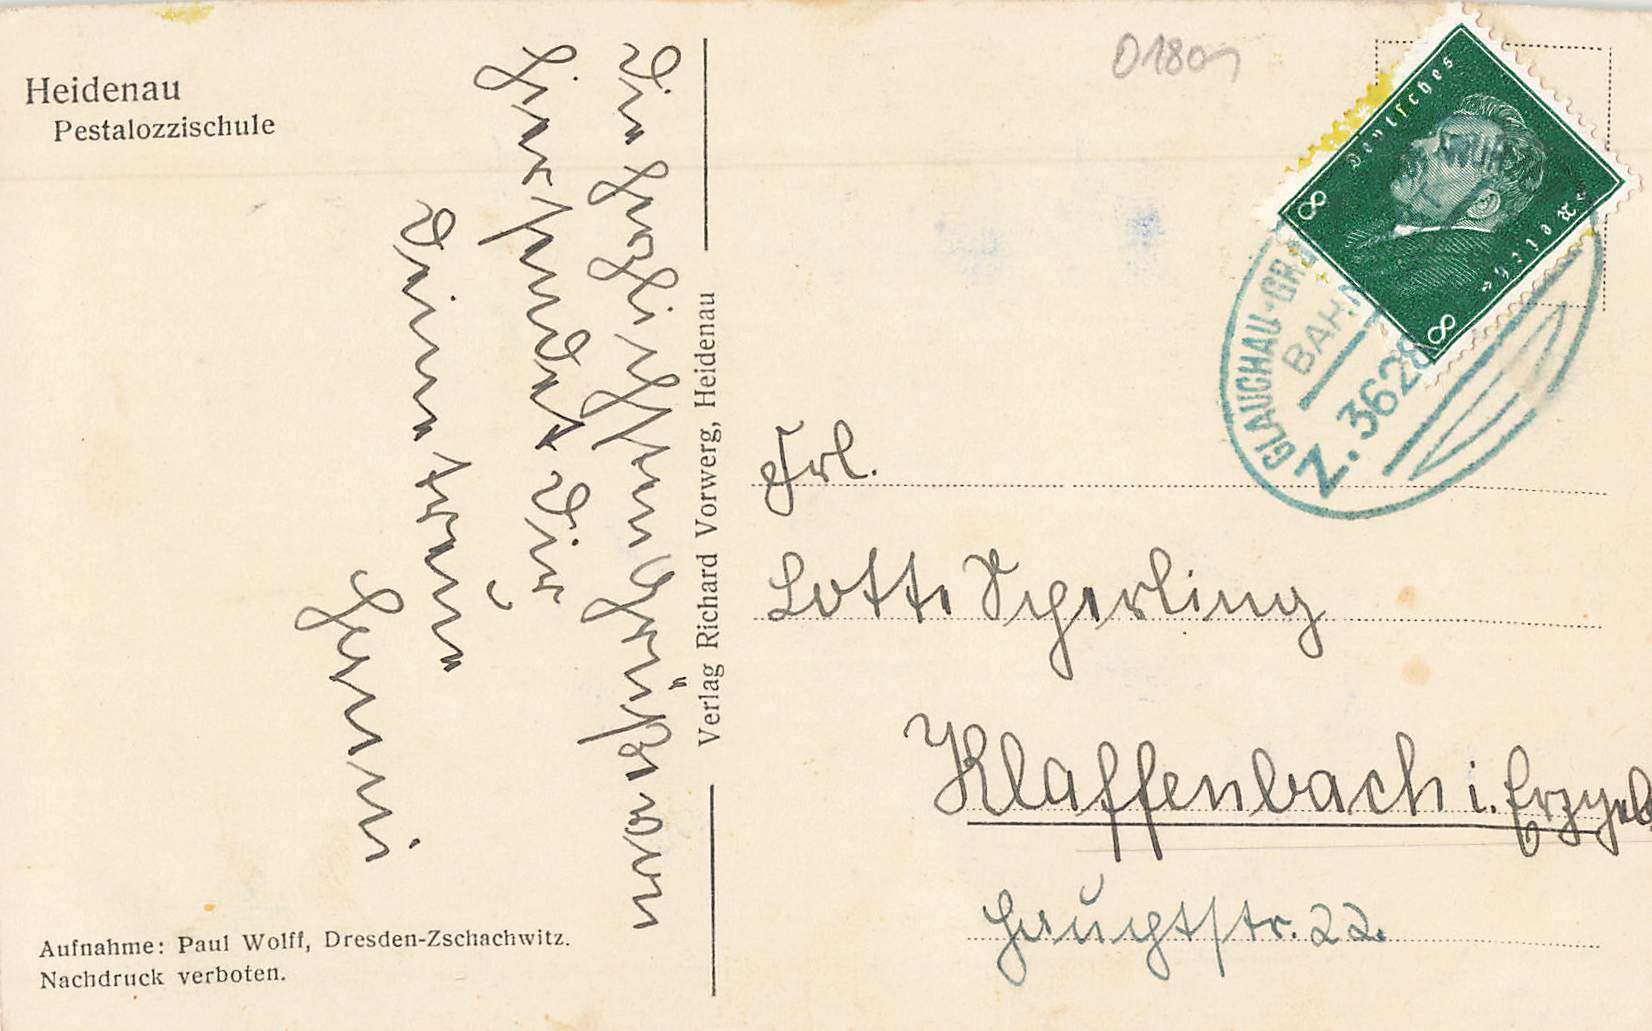 Heidenau
Pestalozzischule
Die herzlichsten Grüße von
hier sendet Dir
Deine treue
Hanni
Aufnahme: Paul Wolff, Dresden-Zschachwitz.
Nachdruck verboten.
Verlag Richard Vorwerg, Heidenau
Deutsches Reich
8 8
GLAUCHAU-GR
BAHN
Z. 3628
Frl.
Lotte Sperling
Klaffenbach i. Erzgeb
Hauptstr. 22.